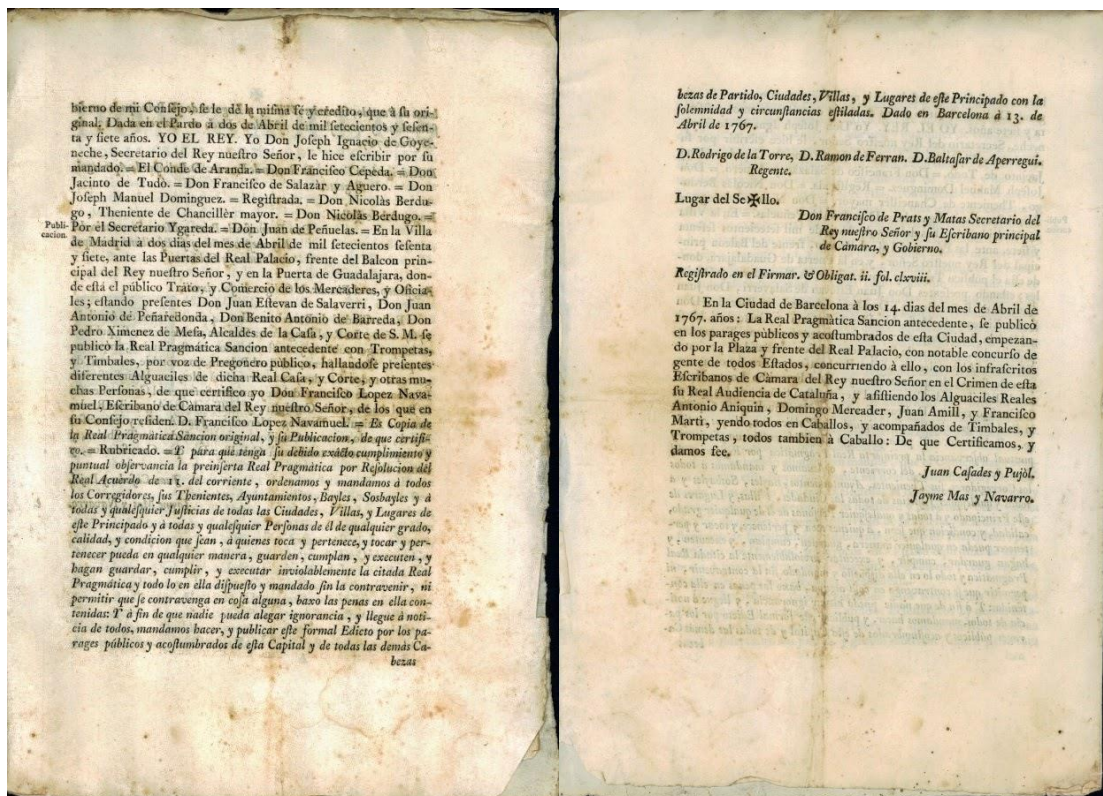 bierno de mi Consejo, se le dé la misma fé y credito, que à su ori-
ginal. Dada en el Pardo à dos de Abril de mil setecientos y sesen-
ta y siete años. YO EL REY. Yo Don Joseph Ignacio de Goye-
neche, Secretario del Rey nuestro Señor, le hice escribir por su
mandado. = El Conde de Aranda. = Don Francisco Cepeda. = Don
Jacinto de Tudò. = Don Francisco de Salazàr y Aguero. = Don
Joseph Manuel Dominguez. = Registrada. = Don Nicolàs Berdu-
go, Theniente de Chancillèr mayor. = Don Nicolàs Berdugo. =
Publi-
cacion.
Por el Secretario Ygareda. = Don Juan de Peñuelas. = En la Villa
de Madrid à dos dias del mes de Abril de mil setecientos sesenta
y siete, ante las Puertas del Real Palacio, frente del Balcon prin-
cipal del Rey nuestro Señor, y en la Puerta de Guadalajara, don-
de està el público Trato, y Comercio de los Mercaderes, y Oficia-
les; estando presentes Don Juan Estevan de Salaverri, Don Juan
Antonio de Peñaredonda, Don Benito Antonio de Barreda, Don
Pedro Ximenez de Mesa, Alcaldes de la Casa, y Corte de S. M. se
publicò la Real Pragmática Sancion antecedente con Trompetas,
y Timbales, por voz de Pregonero público, hallandose presentes
diferentes Alguaciles de dicha Real Casa, y Corte, y otras mu-
chas Personas, de que certifico yo Don Francisco Lopez Nava-
muel, Escribano de Càmara del Rey nuestro Señor, de los que en
su Consejo residen. D. Francisco Lopez Navamuel. = Es Copia de
la Real Pragmàtica Sancion original, y su Publicacion, de que certifi-
co. = Rubricado. = Y para que tenga su debido exácto cumplimiento y
puntual observancia la preinserta Real Pragmática por Resolucion del
Real Acuerdo de 11. del corriente, ordenamos y mandamos à todos
los Corregidores, sus Thenientes, Ayuntamientos, Bayles, Sosbayles y à
todas y qualesquier Justicias de todas las Ciudades, Villas, y Lugares de
este Principado y à todas y qualesquier Personas de él de qualquier grado,
calidad, y condicion que sean, à quienes toca y pertenece, y tocar y per-
tenecer pueda en qualquier manera, guarden, cumplan, y executen, y
hagan guardar, cumplir, y executar inviolablemente la citada Real
Pragmática y todo lo en ella dispuesto y mandado sin la contravenir, ni
permitir que se contravenga en cosa alguna, baxo las penas en ella con-
tenidas: Y à fin de que nadie pueda alegar ignorancia, y llegue à noti-
cia de todos, mandamos hacer, y publicar este formal Edicto por los pa-
rages públicos y acostumbrados de esta Capital y de todas las demás Ca-
bezas
bezas de Partido, Ciudades, Villas, y Lugares de este Principado con la
solemnidad y circunstancias estiladas. Dado en Barcelona à 13. de
Abril de 1767.
D. Rodrigo de la Torre, D. Ramon de Ferran. D. Baltasar de Aperregui.
Regente.
Lugar del Se✠llo.
Don Francisco de Prats y Matas Secretario del
Rey nuestro Señor y su Escribano principal
de Càmara, y Gobierno.
Registrado en el Firmar. & Obligat. ii. fol. clxviii.
En la Ciudad de Barcelona à los 14. dias del mes de Abril de
1767. años: La Real Pragmàtica Sancion antecedente, se publicò
en los parages pùblicos y acostumbrados de esta Ciudad, empezan-
do por la Plaza y frente del Real Palacio, con notable concurso de
gente de todos Estados, concurriendo à ello, con los infrascritos
Escribanos de Càmara del Rey nuestro Señor en el Crimen de esta
su Real Audiencia de Cataluña, y asistiendo los Alguaciles Reales
Antonio Aniquin, Domingo Mercader, Juan Amill, y Francisco
Martì, yendo todos en Caballos, y acompañados de Timbales, y
Trompetas, todos tambien à Caballo: De que Certificamos, y
damos fee.
Juan Casades y Pujòl.
Jayme Mas y Navarro.